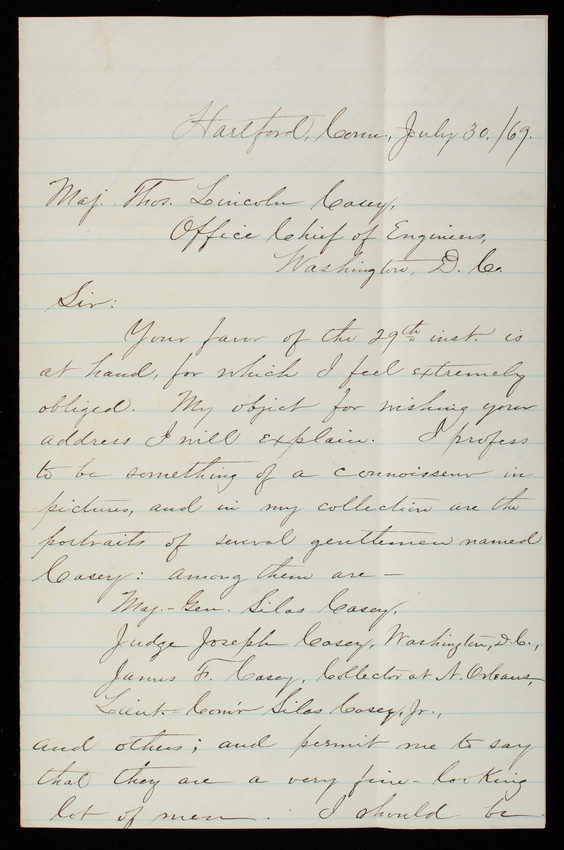 Hartford, Conn., July 30, /69.
Maj. Thos. Lincoln Casey,
Office Chief of Engineers,
Washington, D. C.
Sir:
Your favor of the 29th inst. is
at hand, for which I feel extremely
obliged. My object for wishing your
address I will explain. I profess
to be something of a connoisseur in
pictures, and in my collection are the
portraits of several gentlemen named
Casey: among them are—
Maj.-Gen. Silas Casey,
Judge Joseph Casey, Washington, D.C.,
James F. Casey, Collector at N. Orleans,
Lieut.-Com'r Silas Casey, Jr.,
and others; and permit me to say
that they are a very fine-looking
lot of men. I should be